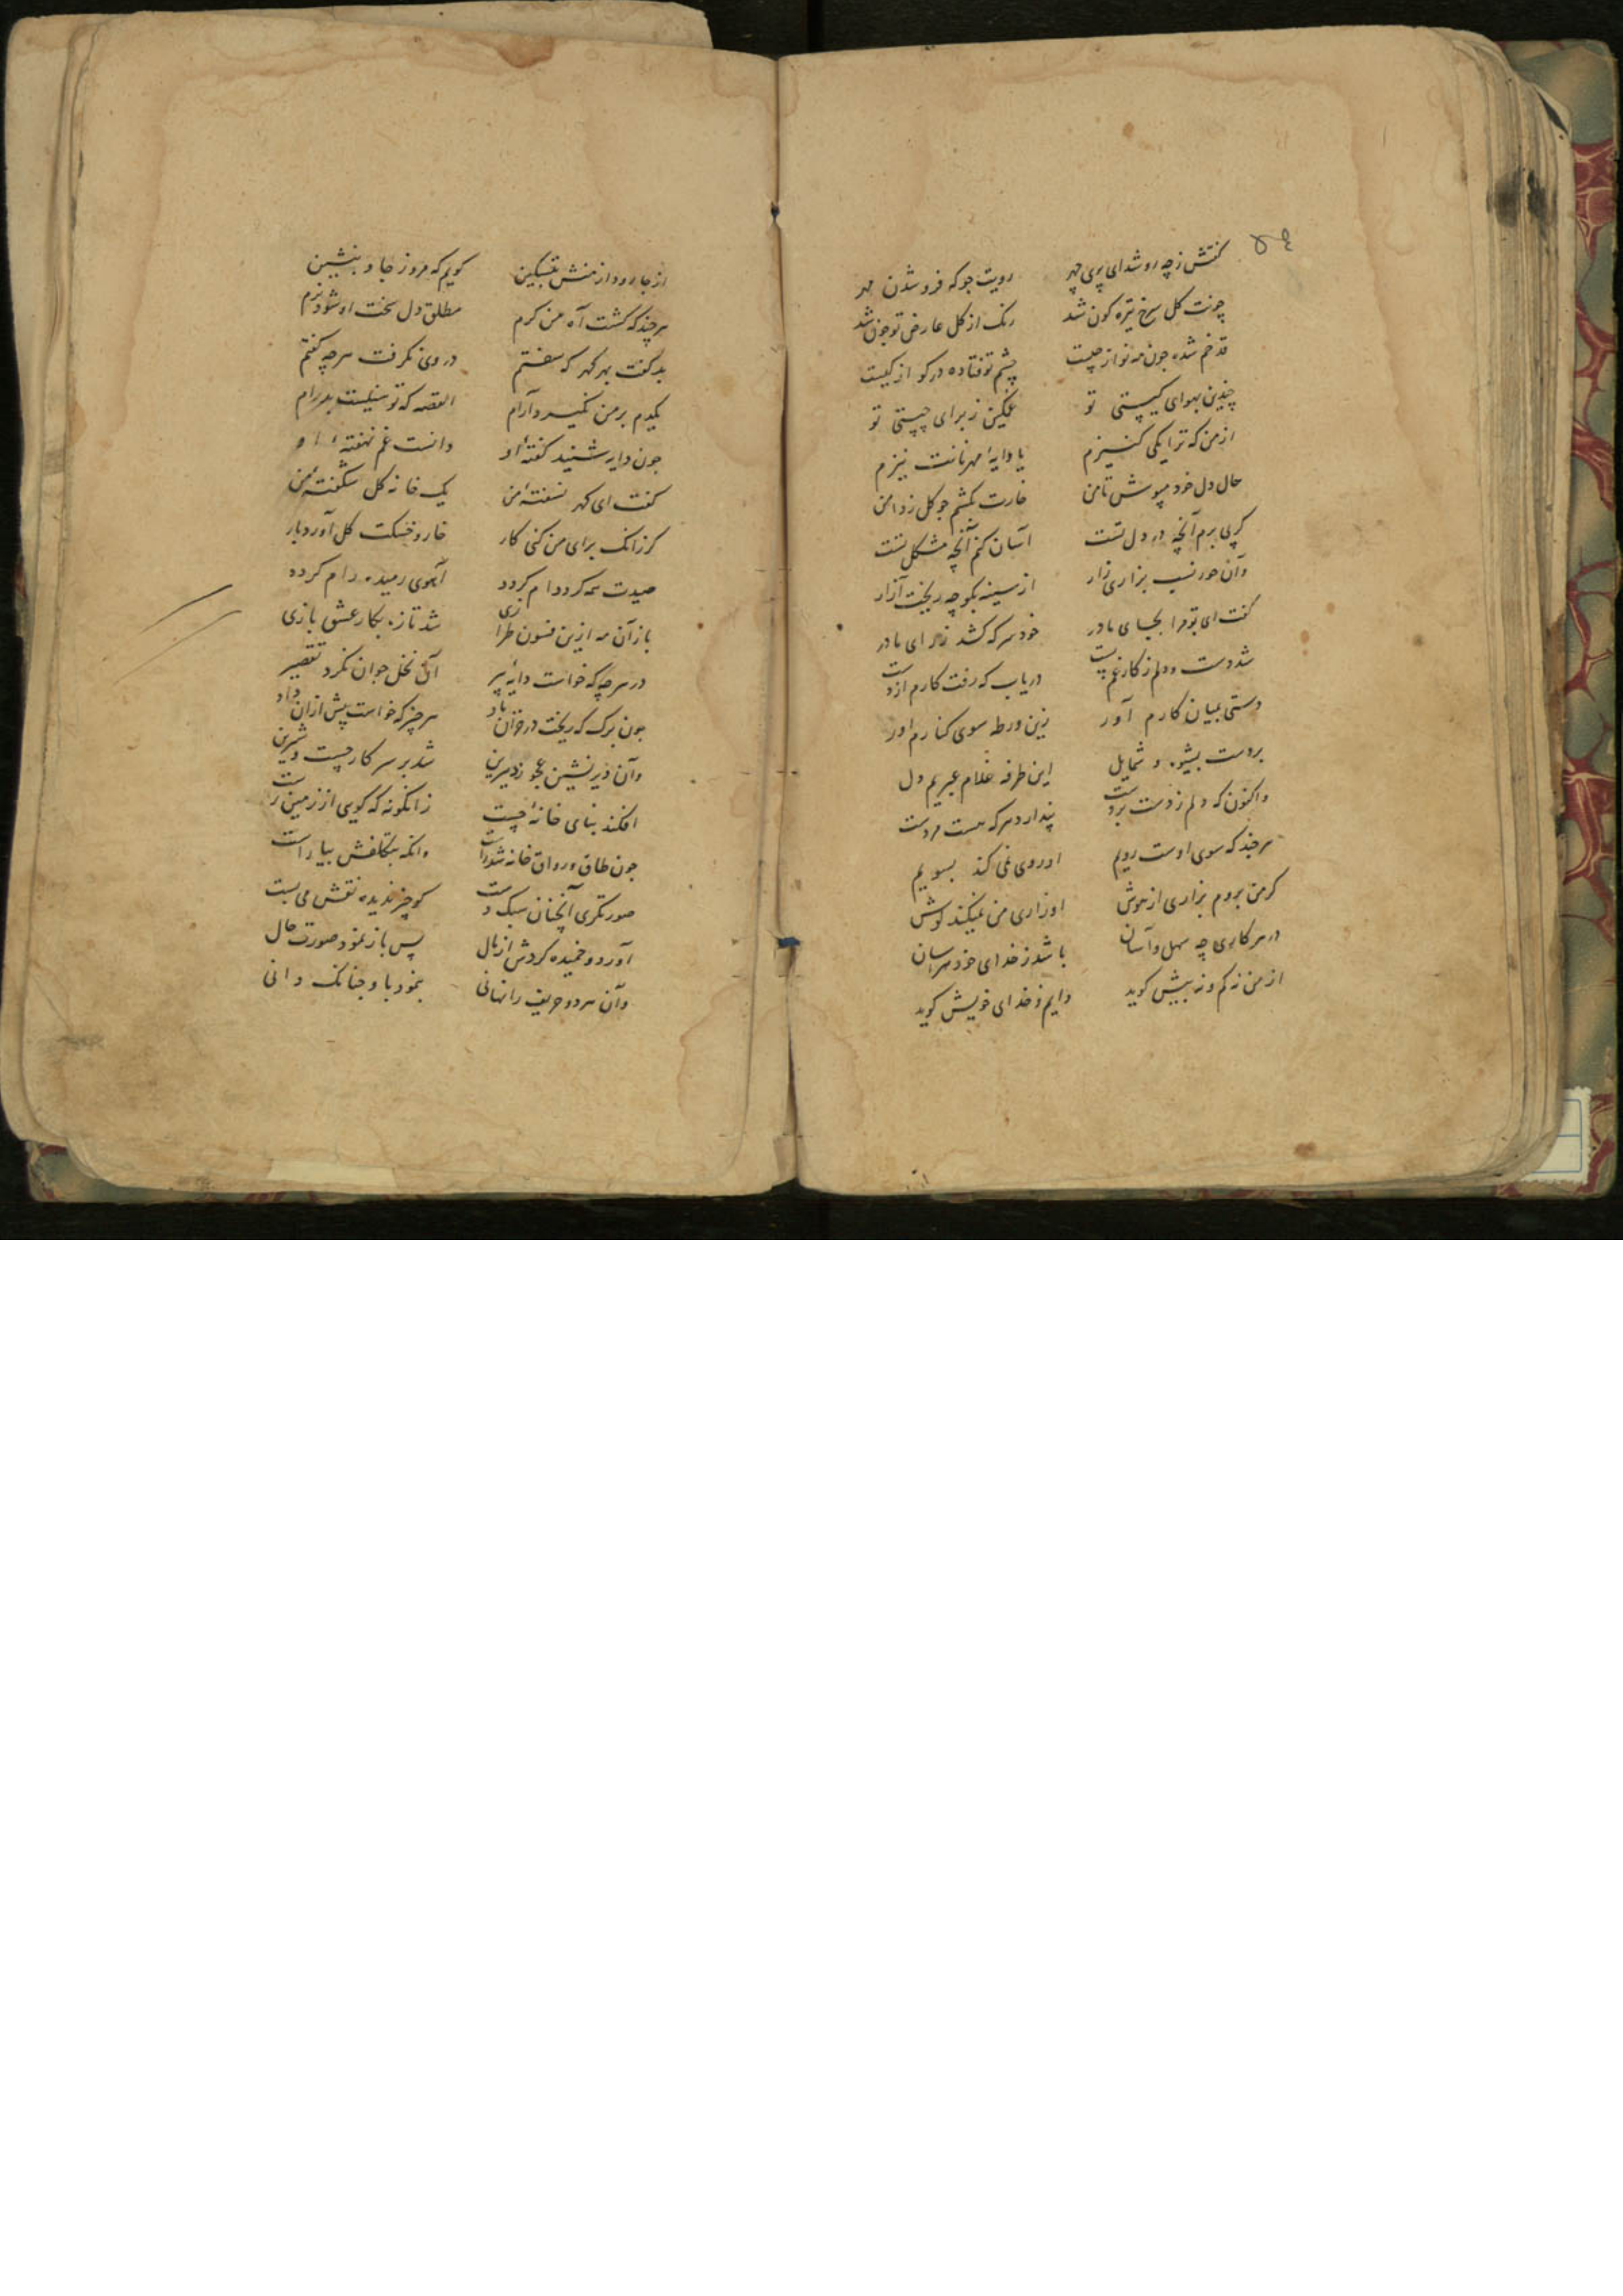 ۵۴
گفتش ز چه رو شد ای پری چهر رویت چو که فرو شدن مهر
چونت گل سرخ تیره گون شد رنگ از گل عارض تو چون شد
قد خم شده چون مه نو از چیست چشم تو فتاده در کو از کیست
چندین بهوای کیستی تو غمگین ز برای چیستی تو
از من که ترا یکی کنیزم یا دایهٔ مهربانت نیزم
حال دل خود مپوش تا من خارت بکشم چو گل ز دامن
گر پی برم آنچه در دل تست آسان کنم آنچه مشکل تست
وآن حور نسب بزاری زار از سینه بگو چه ریخت آزار
گفت ای تو مرا بجای مادر خود سر که کشد ز رای مادر
شد دست و دلم ز کار غم پست دریاب که رفت کارم از دست
دستی بمیان کارم آور زین ورطه سوی کنارم آور
بردست بشیوه و شمایل این طرفه غلام عبریم دل
واکنون که دلم ز دست بردست پندارد هر که هست مردست
هر چند که سوی اوست رویم او روی نمی کند بسویم
گر من بروم بزاری از هوش او زاری من نمیکند گوش
در هر کاری چه سهل و آسان باشد ز خدای خود هراسان
از من نه کم و نه بیش گوید دایم ز خدای خویش گوید
از جا رود از منش بتسکین گویم که مرو ز جا و بنشین
هر چند که گشت آه من گرم مطلق دل سخت او نشود نرم
بد گفت بهر گهر که سفتم در وی نگرفت هر چه گفتم
یکدم بر من نگیرد آرام القصه که توسنیست بدرام
چون دایه شنید گفتهٔ او دانست غم نهفتهٔ او
گفت ای گهر نسفتهٔ من یک خانه گل شکفتهٔ من
گر زانک برای من کنی کار خار و خسکت گل آورد بار
صیدت همه کرد دام گردد آهوی رمیده رام گردد
باز آن مه ازین فسون طرازی شد تازه بکار عشق بازی
در هر چه که خواست دایهٔ پیر آن نخل جوان نکرد تقصیر
چون برگ که ریخت در خزان باد هر چیز که خواست پیش از آن داد
وآن دیر نشین عجوز دیرین شد بر سر کار چست و شیرین
افکند بنای خانهٔ چست زانگونه که گویی از زمین رست
چون طاق و رواق خانه شد راست وانگه بتکلفش بیاراست
صورتگری آنچنان سبک دست کو چیز ندیده نقش می بست
آورد و خمیده کردش از بال پس باز نمود صورت حال
وآن هر دو حریف را نهانی بنمود با و چنانک دانی